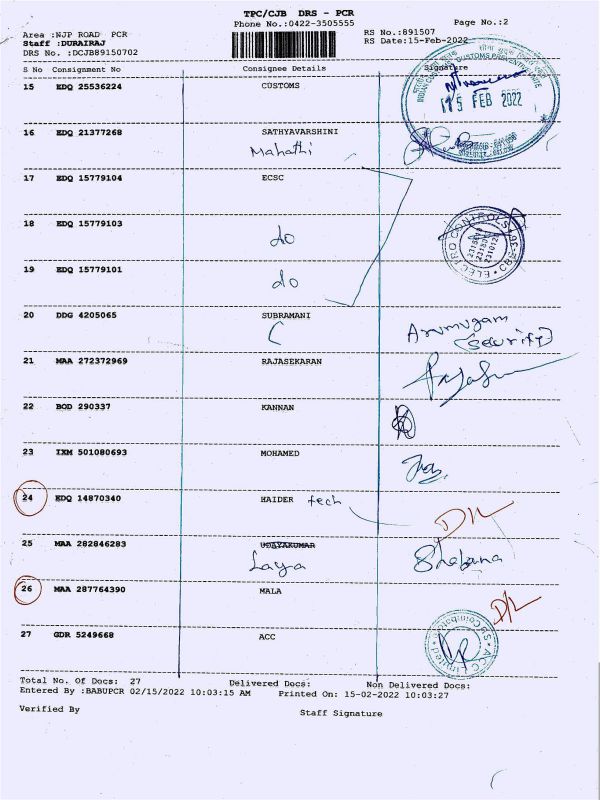 TPC/CJB DRS - PCR
Phone No.:0422-3505555 Page No.:2
Area :NJP ROAD PCR RS No.:891507
Staff :DURAIRAJ RS Date:15-Feb-2022
DRS No. :DCJB89150702
S No Consignment No Consignee Details Signature
15 EDQ 25536224 CUSTOMS
15 FEB 2022
16 EDQ 21377268 SATHYAVARSHINI
Mahathi
17 EDQ 15779104 ECSC
18 EDQ 15779103
do
ELECTRO CONTROLS
19 EDQ 15779101
do
20 DDG 4205065 SUBRAMANI
Arumugam
(security)
21 MAA 272372969 RAJASEKARAN
22 BOD 290337 KANNAN
23 IXM 501080693 MOHAMED
24 EDQ 14870340 HAIDER tech
D/L
25 MAA 282846283 UDAYAKUMAR
Laya Shabana
26 MAA 287764390 MALA D/L
27 GDR 5249668 ACC
Total No. Of Docs: 27 Delivered Docs: Non Delivered Docs:
Entered By :BABUPCR 02/15/2022 10:03:15 AM Printed On: 15-02-2022 10:03:27
Verified By Staff Signature